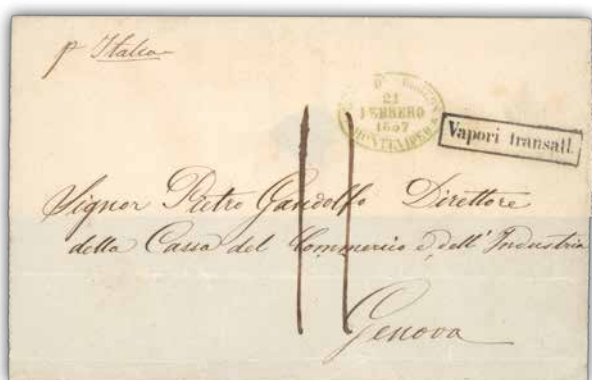 p Italia
21
FEBRERO
1857
MONTEVIDEO
Vapori transatl.
Signor Pietro Gandolfo Direttore
della Cassa del Commercio e dell' Industria
Genova